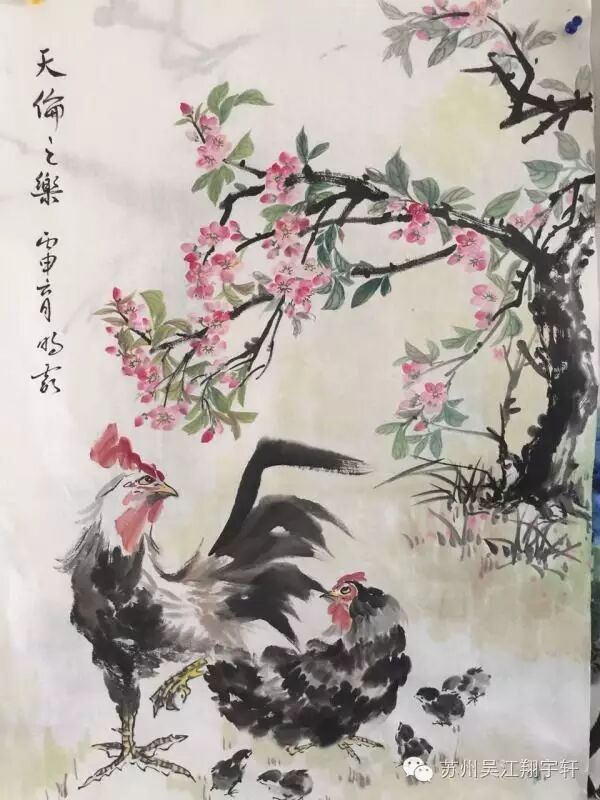 天倫之樂 丙申六月
苏州吴江翔宇轩